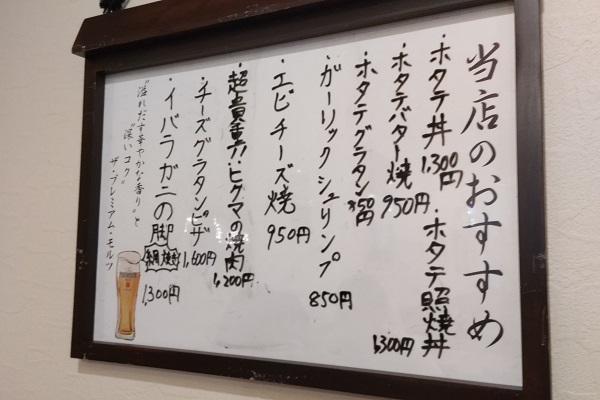 当店のおすすめ
・ホタテ丼 1,300円
・ホタテ照焼丼 1,300円
・ホタテバター焼 950円
・ホタテグラタン 950円
・ガーリックシュリンプ 850円
・エビチーズ焼 950円
・超貴重!!ヒグマの焼肉 1,200円
・チーズグラタンピザ 1,600円
・イバラガニの脚 網焼き 1,300円
"溢れだす華やかな香り"と
"深いコク"
ザ・プレミアム・モルツ